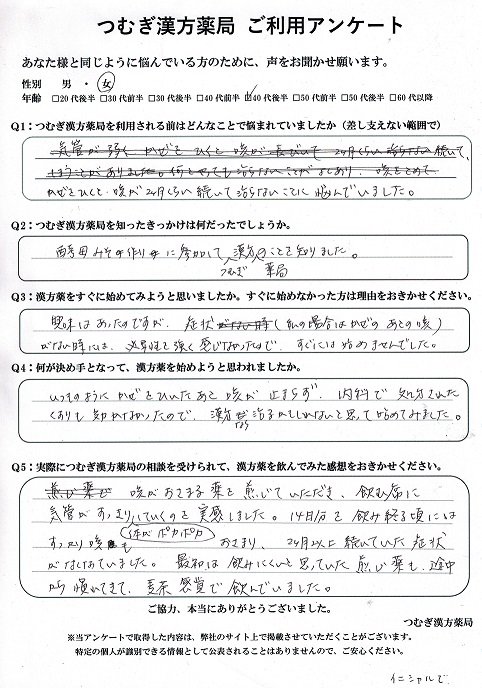 つむぎ漢方薬局 ご利用アンケート
あなた様と同じように悩んでいる方のために、声をお聞かせ願います。
性別 男 ・ 女
年齢 □20代後半 □30代前半 □30代後半 □40代前半 ☑40代後半 □50代前半 □50代後半 □60代以降
Q1:つむぎ漢方薬局を利用される前はどんなことで悩まれていましたか(差し支えない範囲で)
気管が弱く かぜをひくと 咳が 長びいて 2ヶ月くらい 治らない 続いて、
かぜをひくと、咳が2ヶ月くらい続いて治らないことに悩んでいました。
Q2:つむぎ漢方薬局を知ったきっかけは何だったでしょうか。
みそ作りに参加して 漢方のことを知りました。
つむぎ 薬局
Q3:漢方薬をすぐに始めてみようと思いましたか。すぐに始めなかった方は理由をおきかせください。
興味はあったのですが、症状がない時(私の場合はかぜのあとの咳)
がない時には、必要性を強く感じなかったので、すぐには始めませんでした。
Q4:何が決め手となって、漢方薬を始めようと思われましたか。
いつものように かぜをひいたあと 咳が 止まらず、内科で 処方された
くすりも効かなかったので、漢方なら治るかもしれないと思って始めてみました。
Q5:実際につむぎ漢方薬局の相談を受けられて、漢方薬を飲んでみた感想をおきかせください。
煎じ薬で 咳がおさまる薬を煎じていただき、飲む度に
気管がすっきりしていくのを実感しました。14日分を飲み終る頃には
体がポカポカ
すっかり咳も おさまり、2ヶ月以上続いていた症状
がなくなっていました。最初は飲みにくいと思っていた煎じ薬も、途中
から慣れてきて、麦茶感覚で飲んでいました。
ご協力、本当にありがとうございました。
つむぎ漢方薬局
※当アンケートで取得した内容は、弊社のサイト上で掲載させていただくことがございます。
特定の個人が識別できる情報として公表されることはありませんので、ご安心ください。
イニシャルで